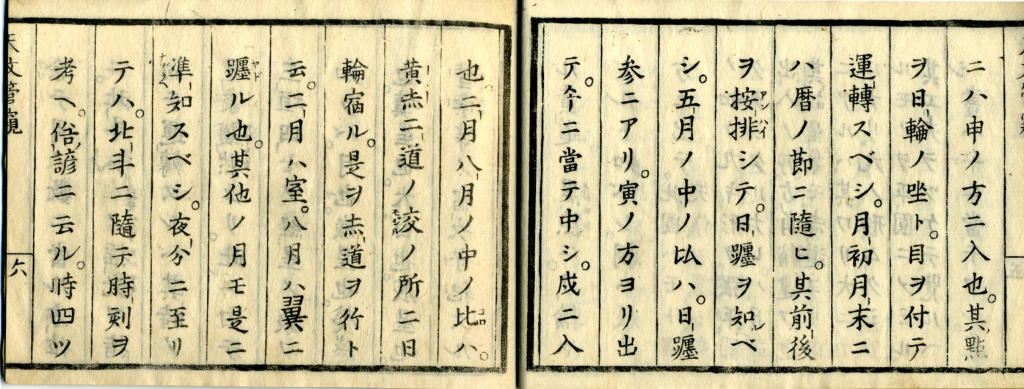 ニハ申ノ方ニ入也。其點
ヲ日輪ノ坐ト。目ヲ付テ
運轉スベシ。月初月末ニ
ハ暦ノ節ニ隨ヒ。其前後
ヲ按排シテ。日躔ヲ知ベ
シ。五月ノ中ノ比ハ。日躔
参ニアリ。寅ノ方ヨリ出
テ。午ニ當テ中シ。戌ニ入
也。二月八月ノ中ノ比ハ。
黄赤二道ノ交ノ所ニ日
輪宿ル。是ヲ赤道ヲ行ト
云。二月ハ室。八月ハ翼ニ
躔ル也。其他ノ月モ是ニ
準知スベシ。夜分ニ至リ
テハ。北斗ニ隨テ時刻ヲ
考ヘ。俗諺ニ云ル。時四ツ
六